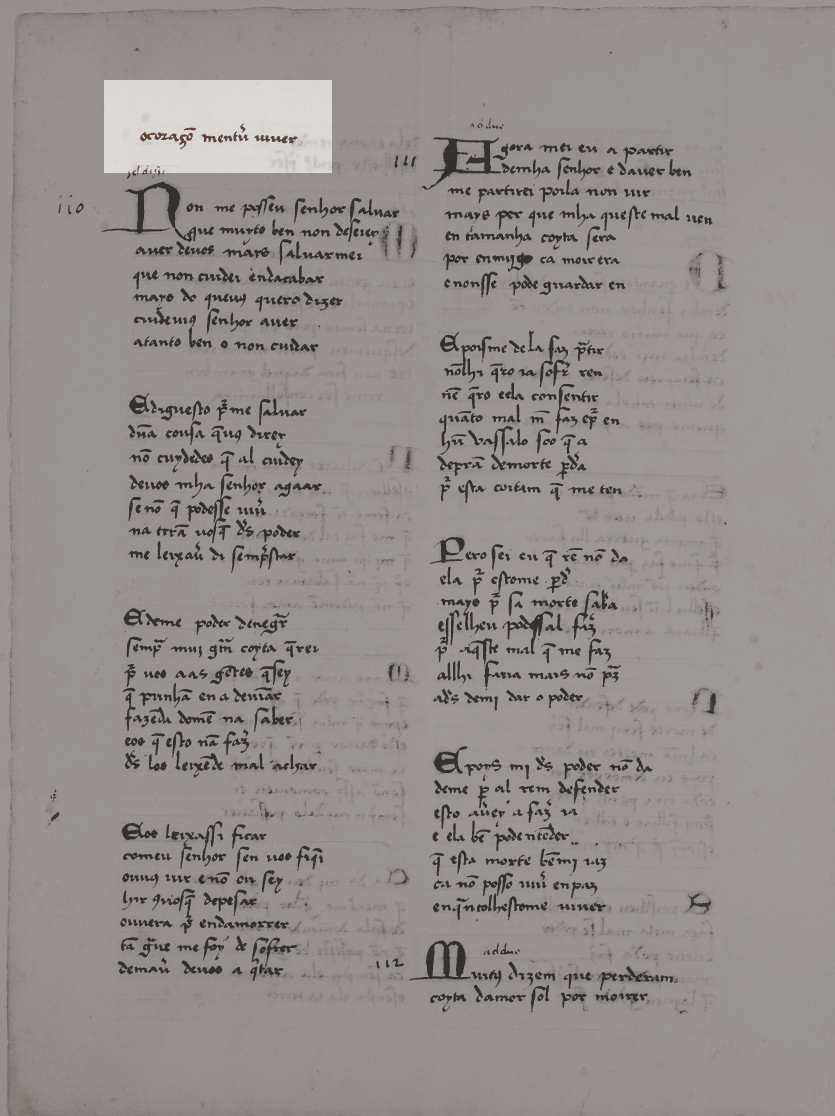 ocoraçõ mentu᷑ uiuer
110
Non me posseu senhor saluar
que muyto ben non deseiey
auer deuos mays saluarmei
que non cuidei endacabar
mays do queuꝯ quero dizer
cuideuꝯ senhor auer
atanto ben o non cuidar
E diguesto pr̃me saluar
dũa cousa q̃uꝯ direy
nõ cuydedes q̃ al cuidey
deuos mha senhor agaar
se nõ q̃ podesse uiu᷑
na terrã uosq̃ d᷑s poder
me leixau᷑ di semp᷑star
E deme poder deneg᷑r
semp᷑ muj g᷑m coyta q̃rei
pr̃ uos aas gẽtes q̃sey
q̃ punhã en adeuiãr
fazẽdu domẽ na saber
eos q̃ esto nã faz᷑
d᷑s los leixẽde mal achar
E os leixassi ficar
comeu senhor sen uos fiq̃i
ouuꝯ uir enõ ou sey
hir ꝯuosq̃ depesar
ouuera pr̃ endamorrer
tã g᷑ue me foy de sofrer
demau᷑ deuos a q᷑tar
111
ad due
Agora mei eu a partir
demha senhor e dauer ben
me partirei poila non uir
mays per que mha queste mal uen
en tamanha coyta sera
por enmigo ca moirera
enonsse pode guardar en
E poisme dela faz p᷑tir
nõlhi q̃ro ia sofr᷑ ren
nẽ q̃ro eela consentir
quãto mal m̃ faz ep᷑ en
hũ uassalo soo q̃ a
deprã demorte p᷑da
p᷑ esta coitam q̃ me ten
Pero sei eu q̃ rẽ nõ da
ela p᷑ estome p᷑d᷑
mays p᷑ sa morte sab᷑a
esselheu podessal faz᷑
p᷑ aq̃ste mal q̃ me faz
allhi faria mais nõ p᷑z
ad᷑s demi dar o poder
E poys mi d᷑s poder nõ da
deme p᷑ al rem defender
esto au᷑ey a faz᷑ ia
e ela bẽ pode ntẽder
q̃ esta morte bẽmi iaz
ca nõ posso uiu᷑ enpaz
enq̃ntolhestome uiuer
112
ad due
Muitꝯ dizem que perderam
coyta damor sol por moirer